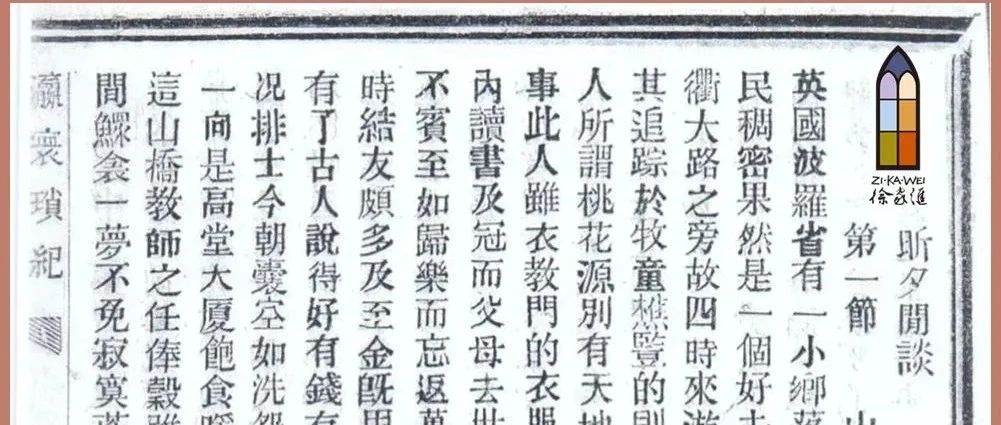 昕夕閒談
第一節　山
英國波羅省有一小鄉落
民稠密果然是一個好
衢大路之旁故四時來游
其追踪於牧童樵豎的則
人所謂桃花源別有天地
事此人雖衣教門的衣服
內讀書及冠而父母去世
不賓至如歸樂而忘返萬
時結友頗多及至金既用
有了古人說得好有錢有
况排士今朝囊空如洗
一向是高堂大厦飽食暖
這山橋教師之任俸穀雖
間鰥衾一夢不免寂寞
瀛寰瑣紀
ZI·KA·WEI
徐家匯